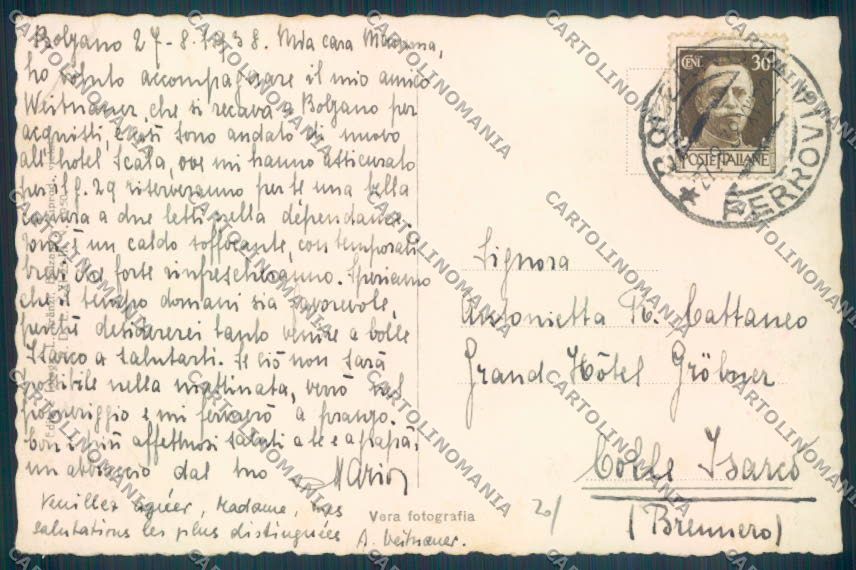 Bolzano 27-8-1938. Mia cara Mamma,
ho voluto accompagnare il mio amico
Weitnauer, che si recava a Bolzano per
acquisti, e così sono andato di nuovo
all'hotel Scala, ove mi hanno assicurato
per il g. 29 riserveranno per te una bella
camera a due letti nella dépendance.
è un caldo soffocante, con temporali
brevi che forse rinfrescheranno. Speriamo
che il tempo domani sia favorevole,
perchè desidererei tanto venire a Colle
Isarco a salutarti. Se ciò non sarà
possibile nella mattinata, verrò nel
pomeriggio e mi fermerò a pranzo.
Con i più affettuosi saluti a te e a papà,
un abbraccio dal tuo Mario
Veuillez agréer, Madame, mes
salutations les plus distinguées
A. Weitnauer.
Vera fotografia
20/
CENT. 30
POSTE ITALIANE
COLLE
FERROVIA
Signora
Antonietta R. Cattaneo
Grand Hôtel Gröbner
Colle Isarco
(Brennero)
CARTOLINOMANIA